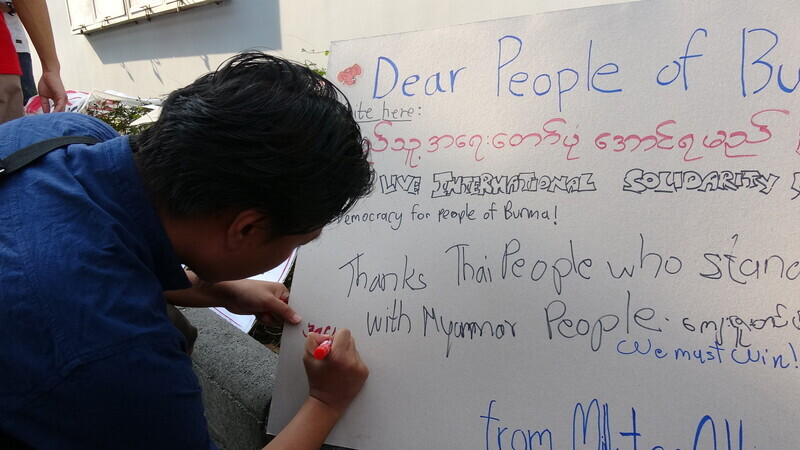 Dear People of Bu
ite here:
ည်သူ့ အရေးတော်ပုံ အောင်ရမည်
LIVE INTERNATIONAL SOLIDARITY
Democracy for people of Burma!
Thanks Thai People who stand
with Myanmar People. ကျေးဇူးတင်
We must win!
from